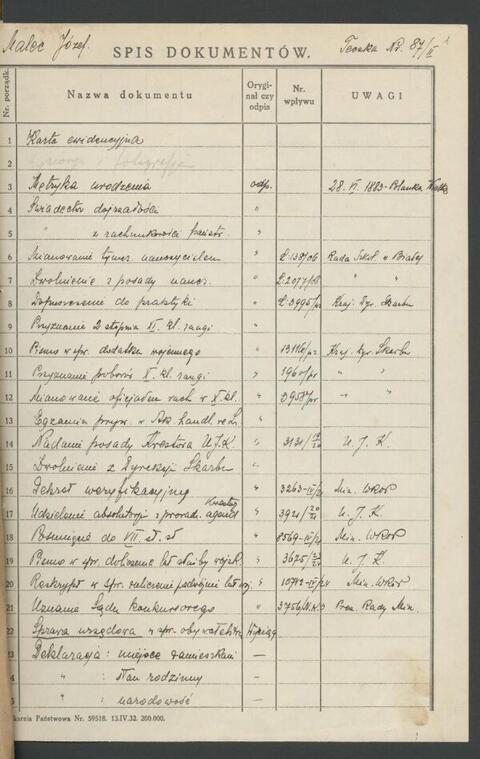 Malec Józef.
SPIS DOKUMENTÓW.
Teczka Nr. 87/II
Nr. porządk.
Nazwa dokumentu
Orygi-
nał czy
odpis
Nr.
wpływu
UWAGI
1 Karta ewidencyjna
2 i fotografja
3 Metryka urodzenia odp. 28. VI. 1883 - Polanka Wielka
4 Świadectw. dojrzałości "
5 " z rachunkowości państw. "
6 Mianowanie tymcz. nauczycielem " L 139/06 Rada Szkol. w Białej
7 Zwolnienie z posady naucz. " " "
8 Dopuszczenie do praktyki " Kraj. Dyr. Skarbu
9 Przyznanie 2 stopnia XI. kl. rangi "
10 Pismo w spr. dodatku wojennego " Kraj. Dyr. Skarbu
11 Przyznanie poborów X. kl. rangi " " "
12 Mianowanie oficjałem rach. w X. kl. "
13 Egzamin przyw. w Ak. handl. we L. "
14 Nadanie posady Kwestora U.J.K. " U. J. K.
15 Zwolnienie z Dyrekcji Skarbu "
16 Dekret weryfikacyjny " Min. WRiOP
17 Udzielenie absolutorjum z prowadz. agend Kwestury " U. J. K.
18 Posunięcie do VII. st. sł. " Min. WRiOP
19 Pismo w spr. dolicz. lat służby wojsk. " U. J. K.
20 Reskrypt w spr. zaliczenia podwójnie lat woj. " Min. WRiOP
21 Uznanie Sądu konkursowego " Prez. Rady Min.
22 Sprawa urzędowa w spr. obywatelstwa Wyciąg
23 Deklaracja: miejsce zamieszkania —
4 " : stan rodzinny —
5 " : narodowość —
karnia Państwowa Nr. 59518. 13.IV.32. 200.000.